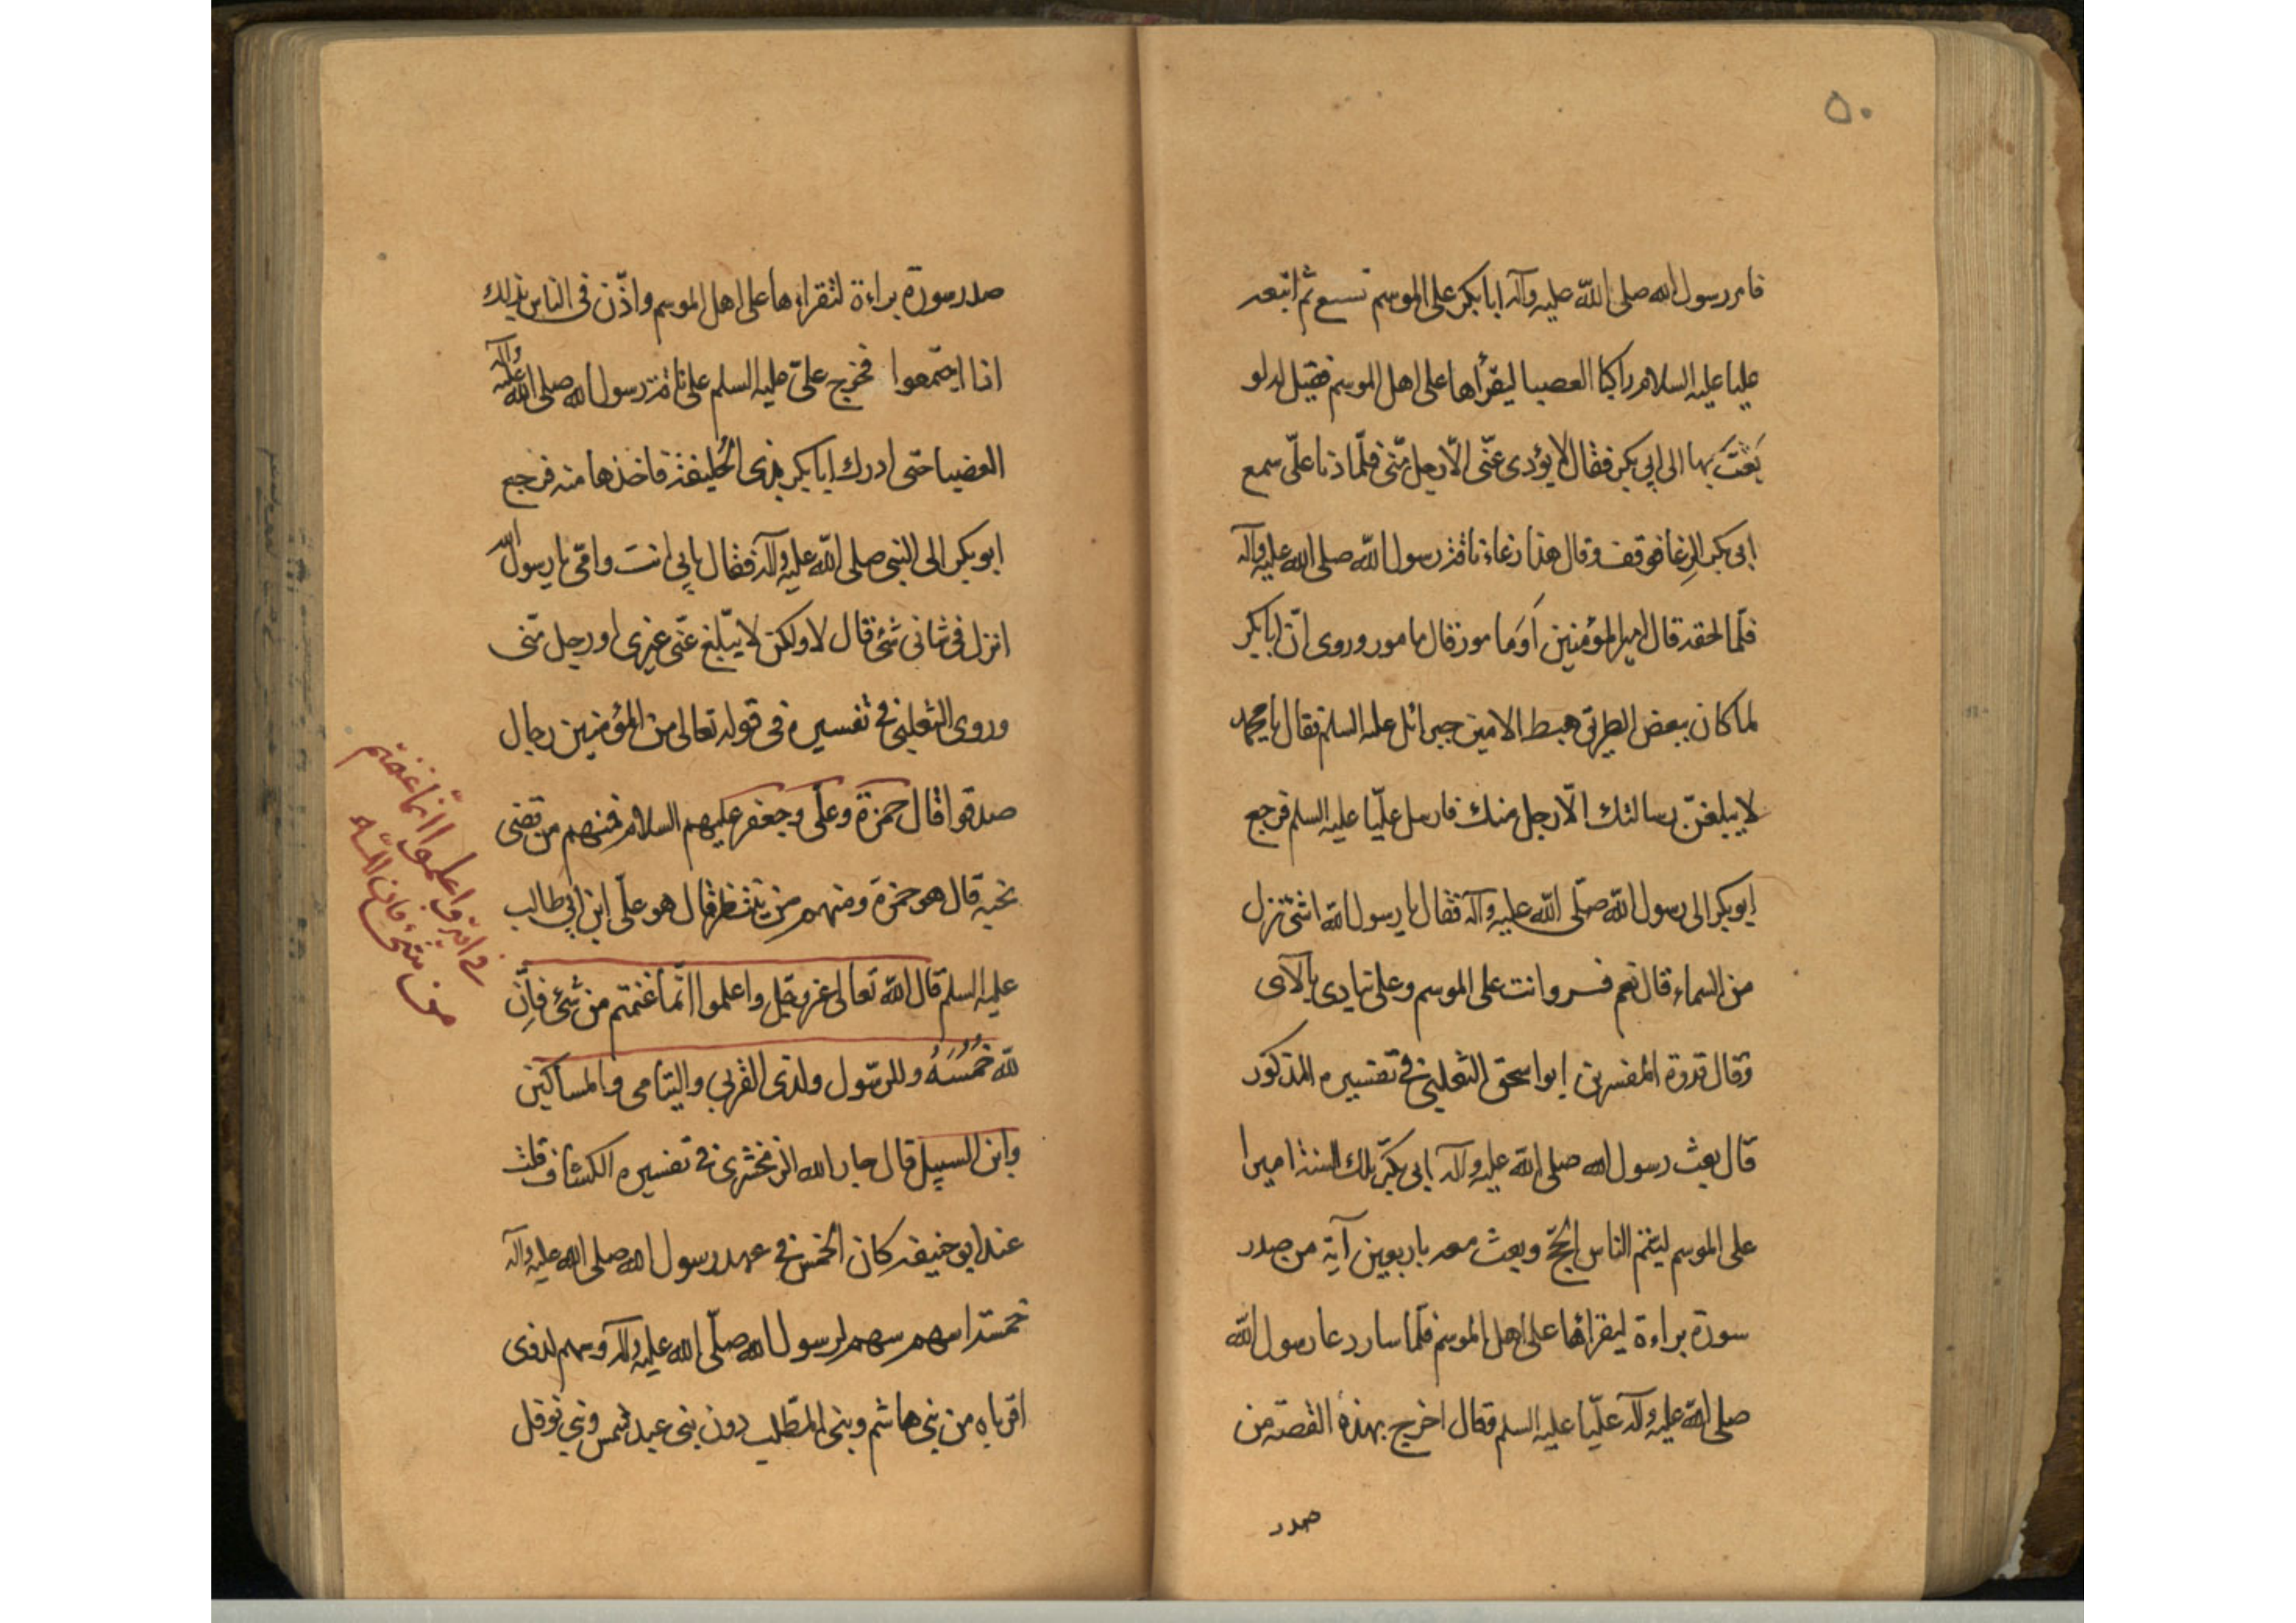 ٥٠
فامر رسول الله صلى الله عليه وآله ابا بكر على الموسم تسع ثم اتبعه
عليا عليه السلام راكبا العصبا ليقرأها على اهل الموسم فقيل له لو
بَعَثتَ بها الى ابي بكر فقال لا يؤدى عنّى الّا رجل منّى فلمّا دنا علّى سمع
ابى بكر الرغا فوقف وقال هذا رغاء ناقة رسول الله صلى الله عليه وآله
فلمّا لحقه قال امير المؤمنين اَوَمامور قال مامور وروى انّ ابا بكر
لما كان ببعض الطريق هبط الامين جبرائل عليه السلم فقال يا محمد
لا يبلغنّ رسالتك الّا رجل منك فارسل عليّا عليه السلم فرجع
ابو بكر الى رسول الله صلّى الله عليه وآله فقال يا رسول الله اشئ نزل
من السماء قال نعم فسر وانت على الموسم وعلى ينادى بالآى
وقال قدوة المفسرين ابو اسحق الثعلبى فى تفسيره المذكور
قال بعث رسول الله صلى الله عليه وآله ابى بكر تلك السنة اميرا
على الموسم ليقيم الناس الحجّ وبعث معه باربعين آية من صدر
سورة براءة ليقرائها على اهل الموسم فلمّا سار دعا رسول الله
صلى الله عليه وآله عليّا عليه السلم فقال اخرج بهذه القصة من
صدر
صدر سورة براءة لتقراءها على اهل الموسم واذّن فى الناس بذلك
اذا اجتمعوا فخرج علىّ عليه السلم على ناقة رسول الله صلى الله عليه وآله
العضبا حتى ادرك ابا بكر بذى الحليفة فاخذها منه فرجع
ابو بكر الى النبى صلى الله عليه وآله فقال بابي انت وامّى يا رسول الله
انزل فى شانى شئ قال لا ولكن لا يبّلغ عنّى غيرى او رجل منّى
وروى الثعلبى فى تفسيره فى قوله تعالى من المؤمنين رجال
صدقوا قال حمزة وعلّى وجعفر عليهم السلام فمنهم من قضى
نحبه قال هو حمزة ومنهم من ينتظر قال هو علّى ابن ابي طالب
عليه السلم قال الله تعالى عز وجل واعلموا انّما غنمتم من شئ فانّ
لله خُمُسَهُ وللرسّول ولذى القربي واليتامى والمساكين
وابن السبيل قال جار الله الزمخشرى فى تفسيره الكشاف قلت
عند ابو حنيفه كان الخمس فى عهد رسول الله صلى الله عليه وآله
خمسة اسهم سهم لرسول الله صلّى الله عليه وآله وسهم لذوى
اقرباه من بنى هاشم وبنى المطّلب دون بنى عبد شمس وبني نوفل
واعلموا انّما غنمتم
من شئ فان لله